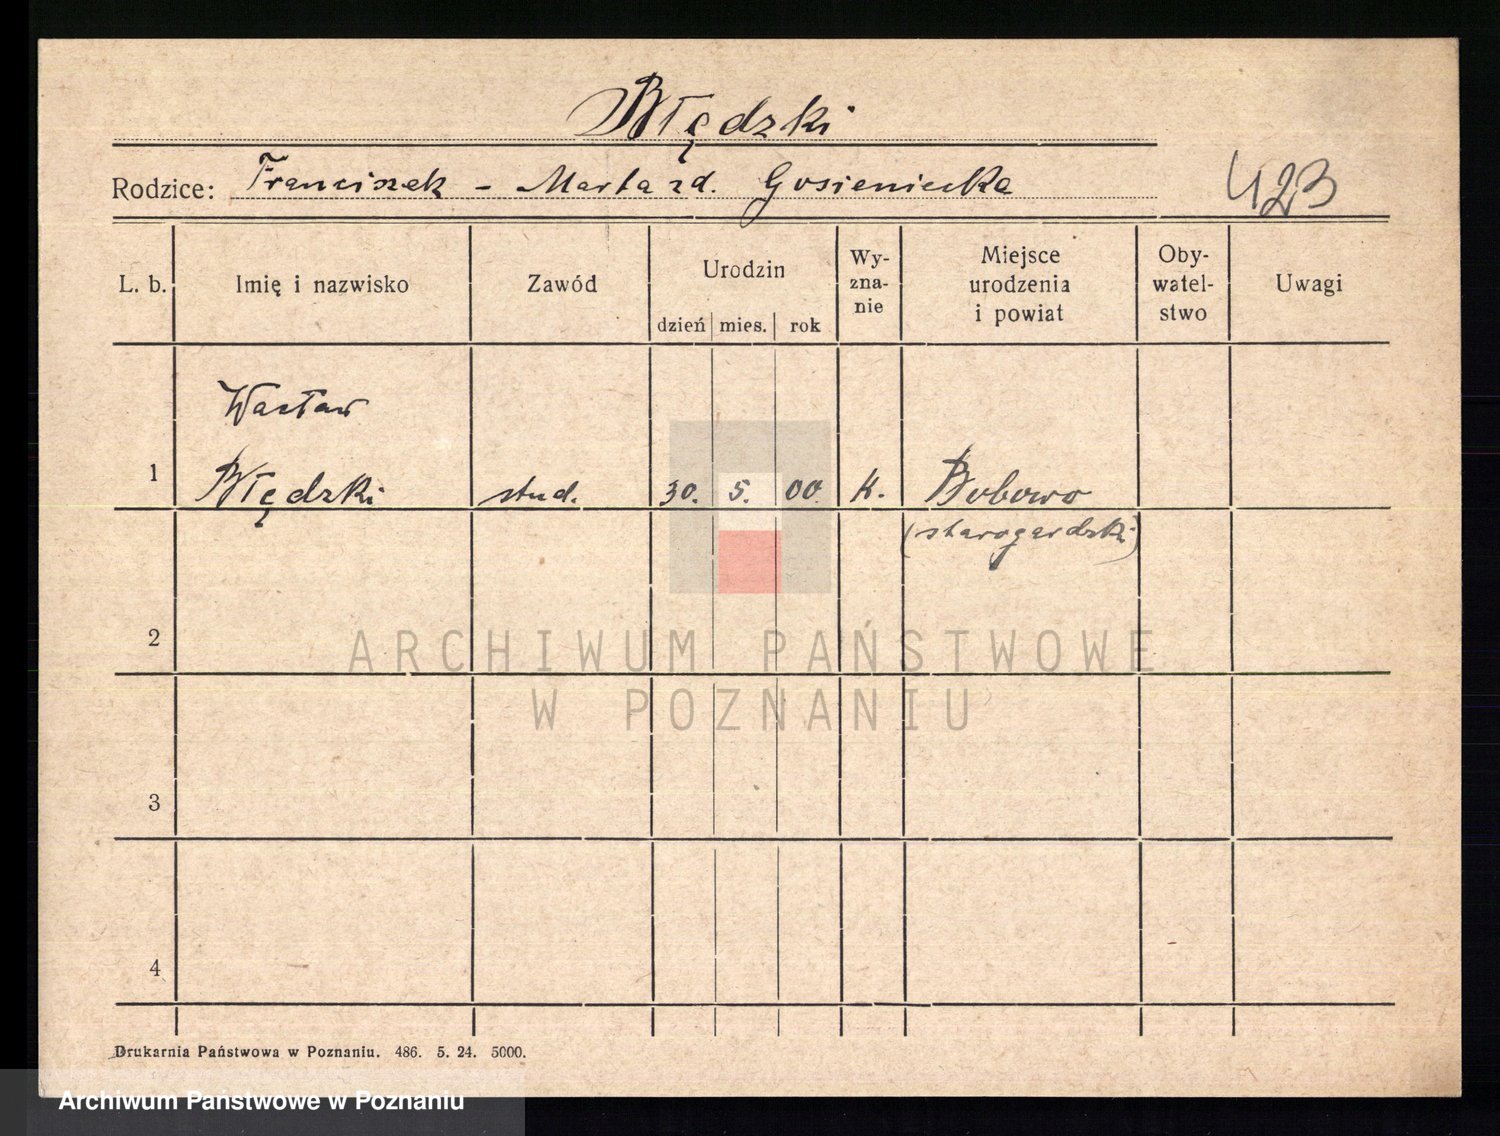 Błędzki
Rodzice: Franciszek - Marta zd. Gosieniecka
423
L. b. Imię i nazwisko Zawód Urodzin dzień mies. rok Wy-zna-nie Miejsce urodzenia i powiat Oby-watel-stwo Uwagi
Wacław
1 Błędzki stud. 30. 5. 00. K. Bobowo
(starogardzki)
2
ARCHIWUM PAŃSTWOWE
W POZNANIU
3
4
Drukarnia Państwowa w Poznaniu. 486. 5. 24. 5000.
Archiwum Państwowe w Poznaniu